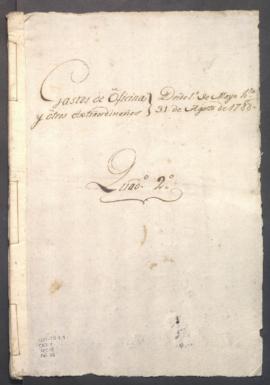 Gastos de Oficina } Desde 1.º de Mayo h.ta
y otros extraordinarios } 31 de Agosto de 178
Quad.º 2.º